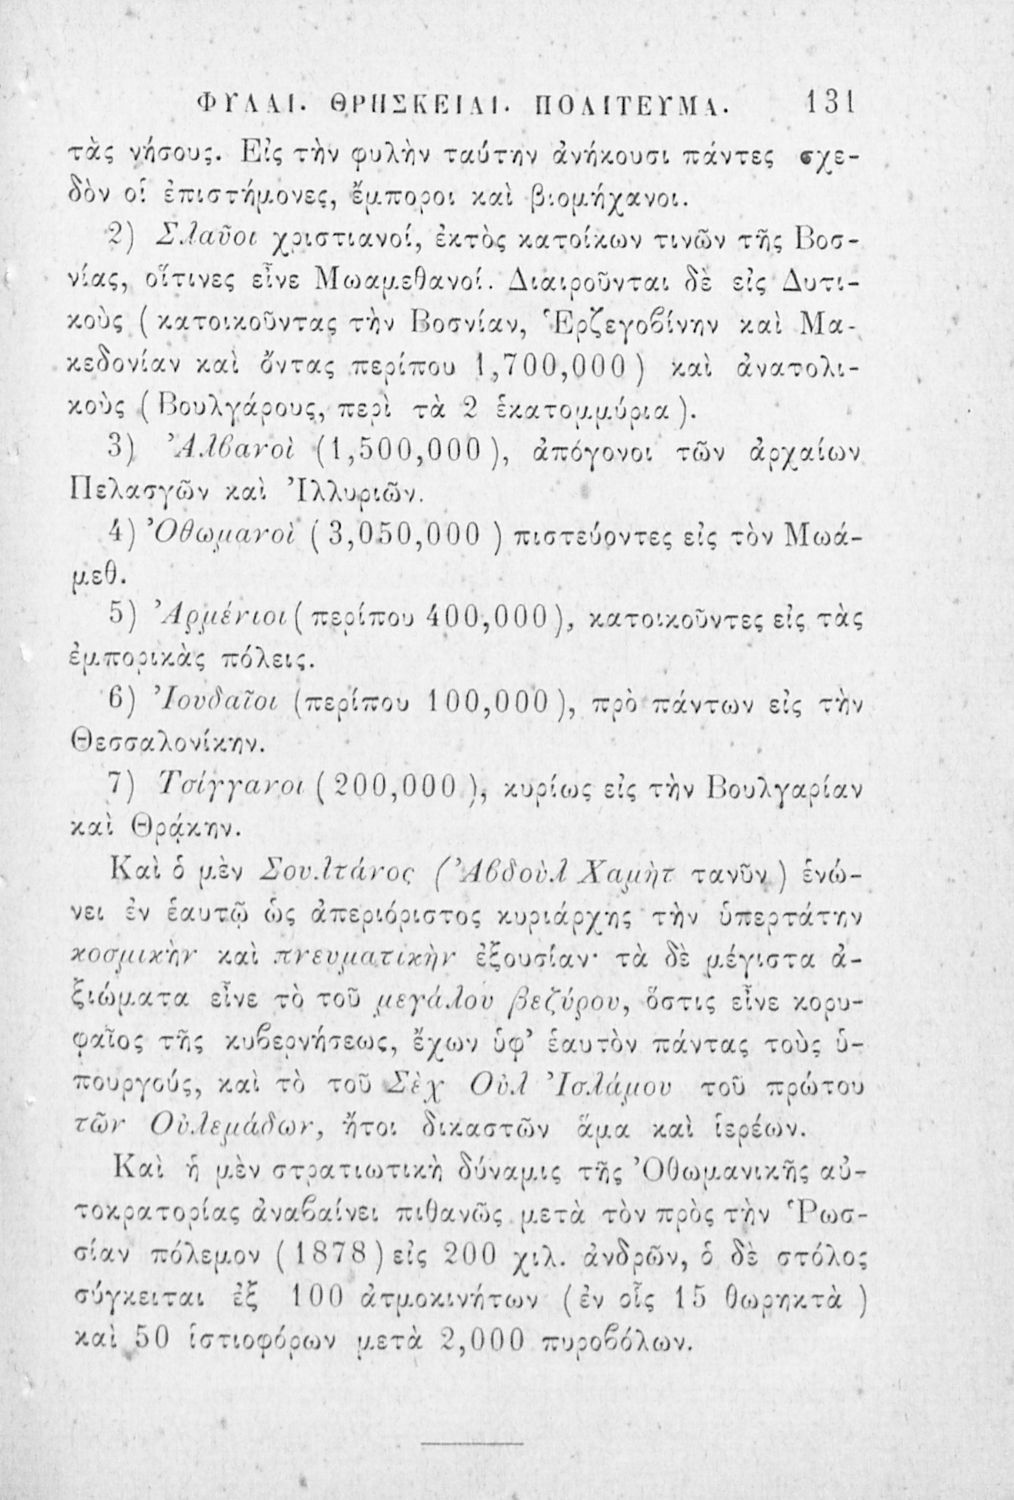 ΦΥΛΑΙ. ΘΡΗΣΚΕΙΑΙ. ΠΟΛΙΤΕΥΜΑ. 131
τὰς νήσους. Εἰς τὴν φυλὴν ταύτην ἀνήκουσι πάντες σχε-
δὸν οἱ ἐπιστήμονες, ἔμποροι καὶ βιομήχανοι.
2) Σλαῦοι χριστιανοί, ἐκτὸς κατοίκων τινῶν τῆς Βοσ-
νίας, οἵτινες εἶνε Μωαμεθανοί. Διαιροῦνται δὲ εἰς Δυτι-
κοὺς (κατοικοῦντας τὴν Βοσνίαν, Ἑρζεγοβίνην καὶ Μα-
κεδονίαν καὶ ὄντας περίπου 1,700,000) καὶ ἀνατολι-
κοὺς (Βουλγάρους, περὶ τὰ 2 ἑκατομμύρια).
3) Ἀλβανοὶ (1,500,000), ἀπόγονοι τῶν ἀρχαίων
Πελασγῶν καὶ Ἰλλυριῶν.
4) Ὀθωμανοὶ (3,050,000) πιστεύοντες εἰς τὸν Μωά-
μεθ.
5) Ἀρμένιοι (περίπου 400,000), κατοικοῦντες εἰς τὰς
ἐμπορικὰς πόλεις.
6) Ἰουδαῖοι (περίπου 100,000), πρὸ πάντων εἰς τὴν
Θεσσαλονίκην.
7) Τσίγγανοι (200,000), κυρίως εἰς τὴν Βουλγαρίαν
καὶ Θράκην.
Καὶ ὁ μὲν Σουλτάνος (Ἀβδοὺλ Χαμὴτ τανῦν) ἑνώ-
νει ἐν ἑαυτῷ ὡς ἀπεριόριστος κυριάρχης τὴν ὑπερτάτην
κοσμικὴν καὶ πνευματικὴν ἐξουσίαν· τὰ δὲ μέγιστα ἀ-
ξιώματα εἶνε τὸ τοῦ μεγάλου βεζύρου, ὅστις εἶνε κορυ-
φαῖος τῆς κυβερνήσεως, ἔχων ὑφ' ἑαυτὸν πάντας τοὺς ὑ-
πουργούς, καὶ τὸ τοῦ Σὲχ Οὐλ Ἰσλάμου τοῦ πρώτου
τῶν Οὐλεμάδων, ἤτοι δικαστῶν ἅμα καὶ ἱερέων.
Καὶ ἡ μὲν στρατιωτικὴ δύναμις τῆς Ὀθωμανικῆς αὐ-
τοκρατορίας ἀναβαίνει πιθανῶς μετὰ τὸν πρὸς τὴν Ῥωσ-
σίαν πόλεμον (1878) εἰς 200 χιλ. ἀνδρῶν, ὁ δὲ στόλος
σύγκειται ἐξ 100 ἀτμοκινήτων (ἐν οἷς 15 θωρηκτὰ)
καὶ 50 ἱστιοφόρων μετὰ 2,000 πυροβόλων.